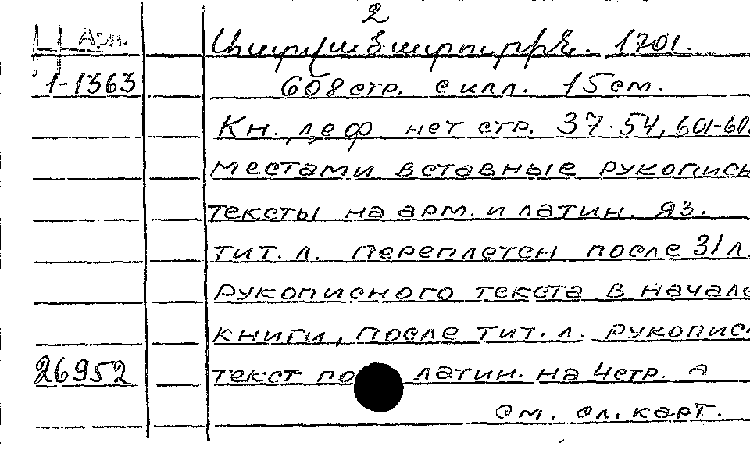 2
Арм.
1-1363
1701.
608 стр. с илл. 15 см.
Кн. деф нет стр. 37-54, 601-60
местами вставные рукопись
тексты на арм. и латин. яз.
тит. л. переплетен после 31 л.
рукописного текста в начале
книги, после тит. л. рукопис
26952
текст по латин. на 4 стр.
см. сл. карт.